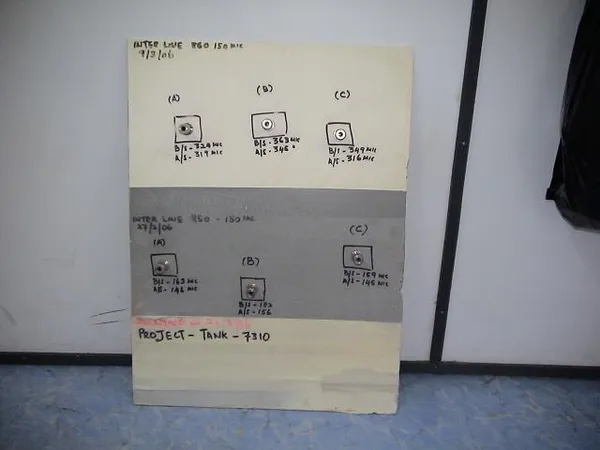 INTER LINE 850 150 MIC
9/3/06
(A)
(B)
(C)
B/S - 324 MIC
A/S - 319 MIC
B/S - 363 MIC
A/S - 345
B/S - 349 MIC
A/S - 316 MIC
INTER LINE 850 - 150 MIC
27/2/06
(A)
(B)
(C)
B/S - 163 MIC
A/S - 146 MIC
B/S - 192
A/S - 156
B/S - 159 MIC
A/S - 145 MIC
PROJECT - TANK - 7310